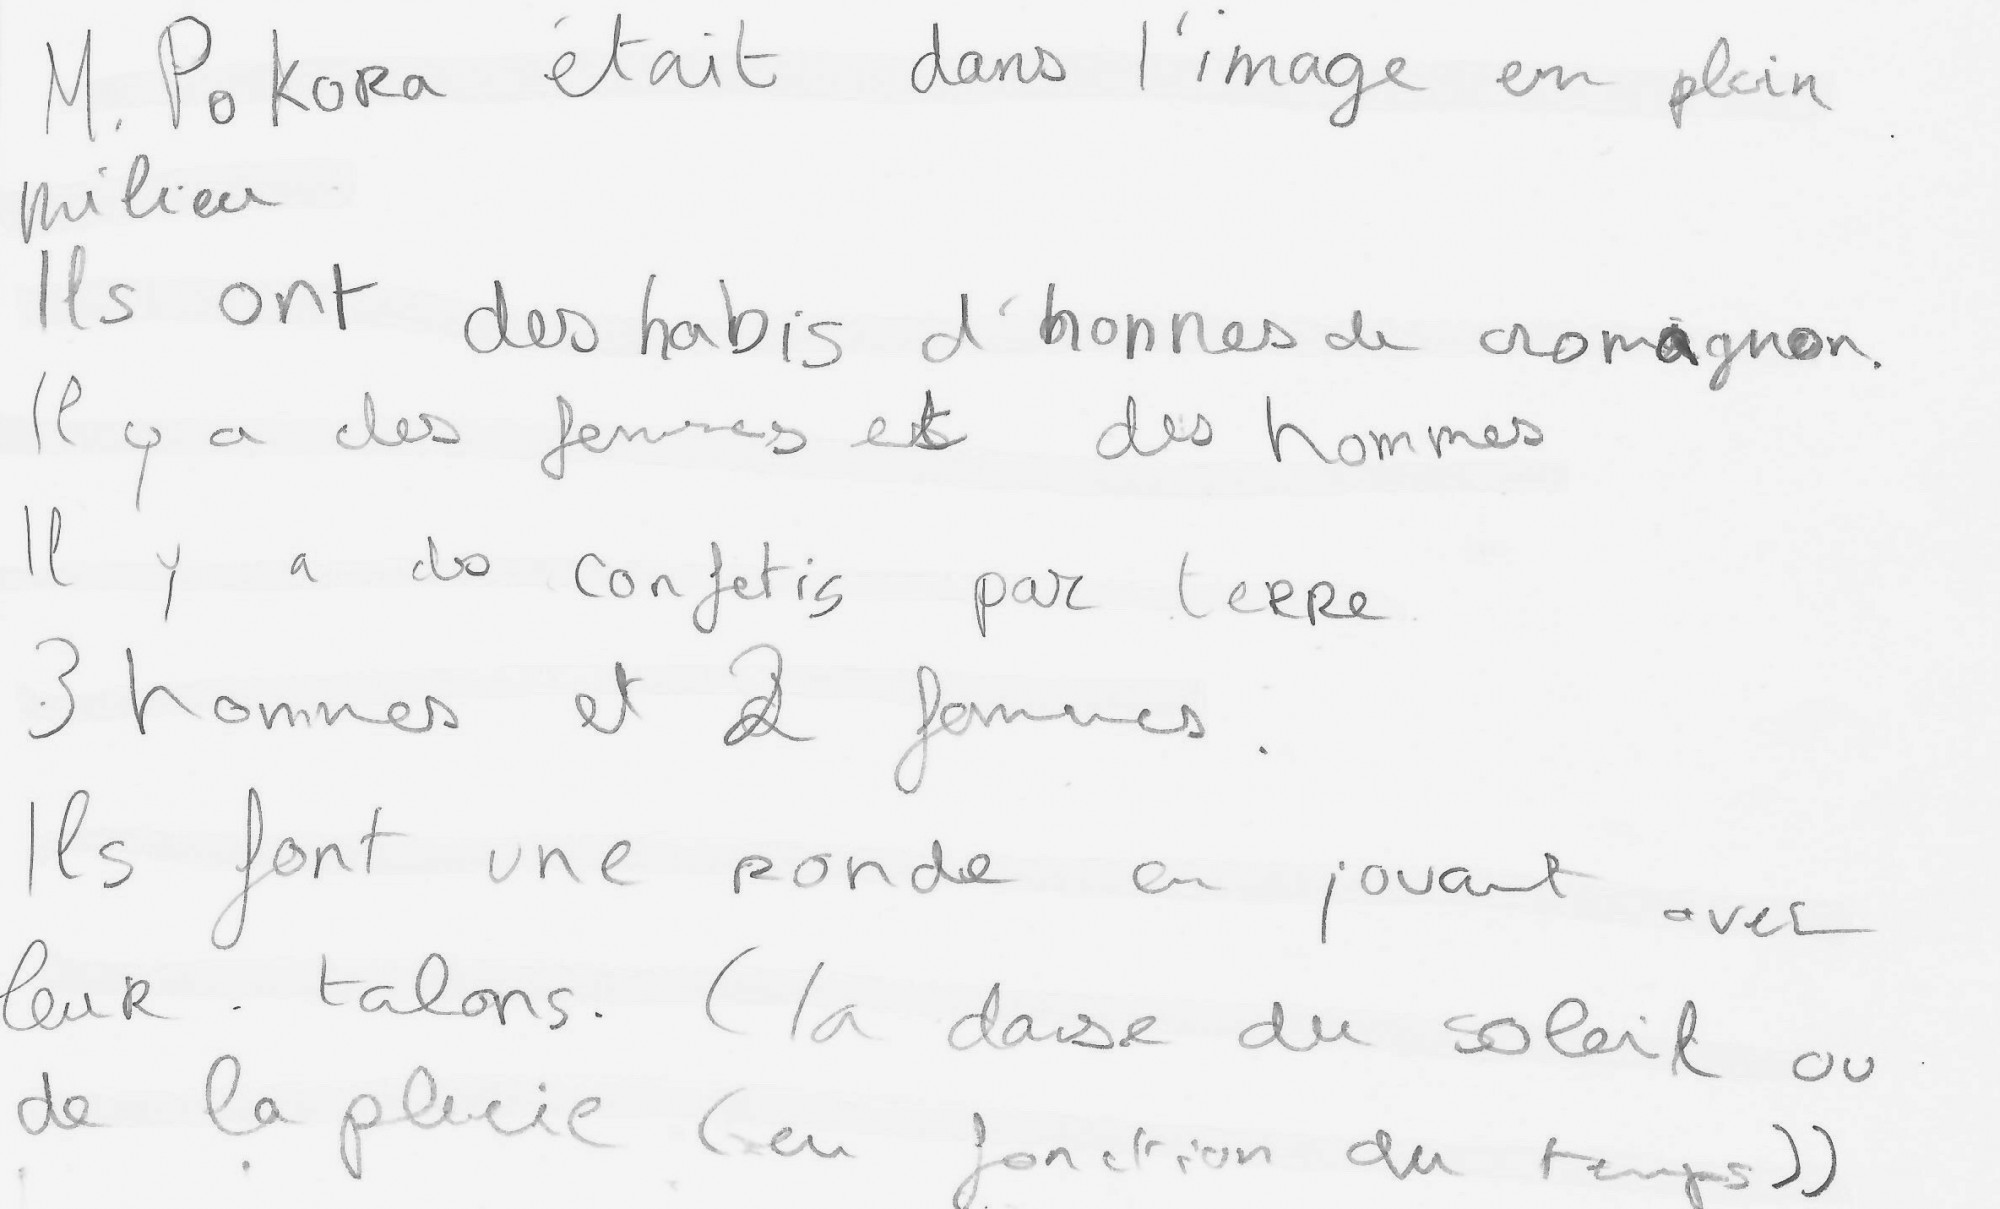 M. PoKORA était dans l'image en plein
milieu
Ils ont des habis d'hommes de cromagnon.
Il y a des femmes et des hommes
Il y a des confetis par terre
3 hommes et 2 femmes.
Ils font une ronde en jouant avec
leur talons. (la danse du soleil ou
de la pluie (en fonction du temps))